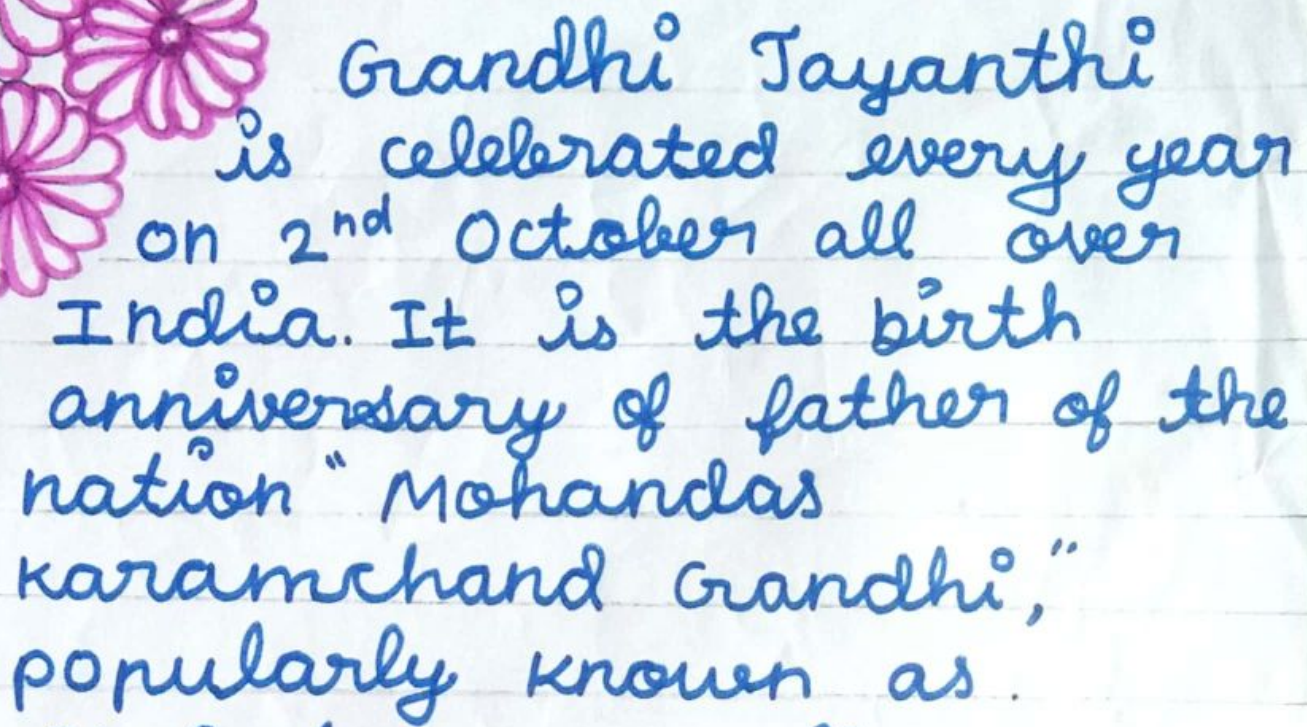 Gandhi Jayanthi
is celebrated every year
on 2nd October all over
India. It is the birth
anniversary of father of the
nation "Mohandas
Karamchand Gandhi,"
popularly known as.